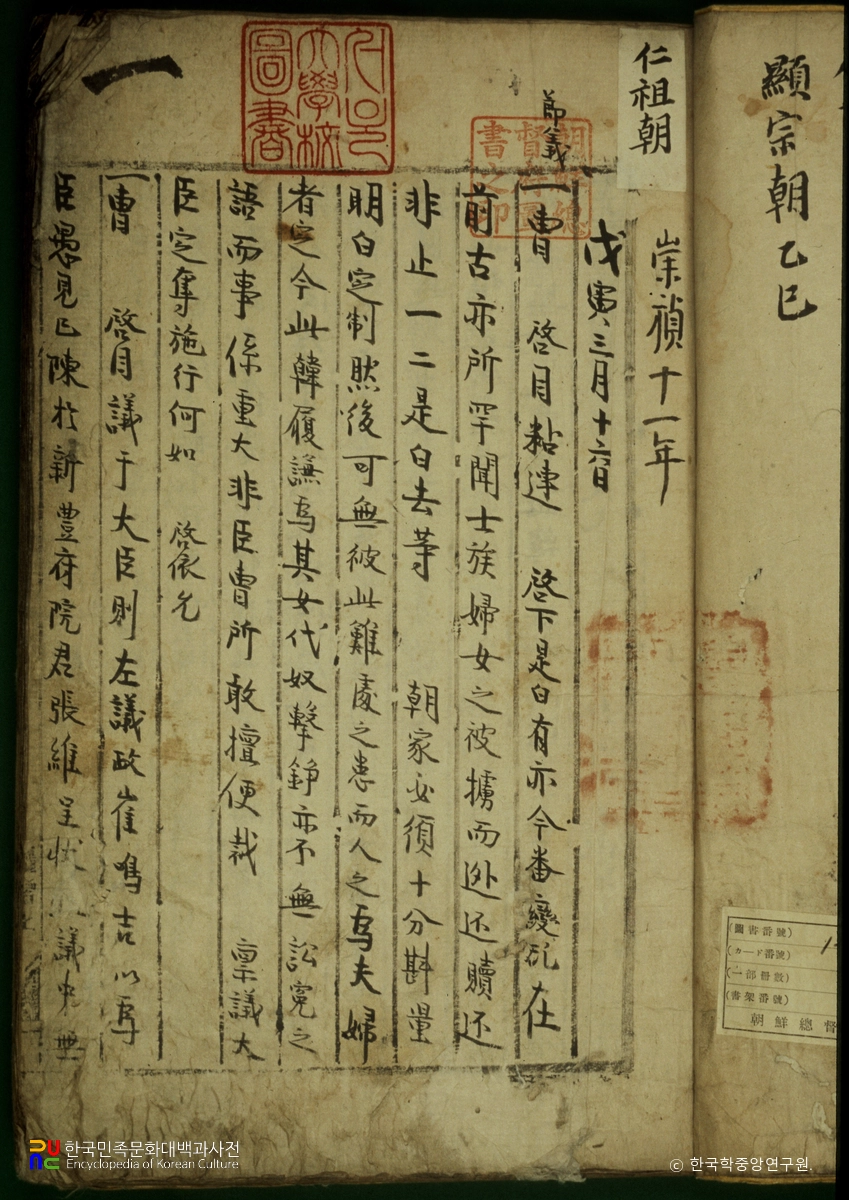 顯宗朝 乙巳
仁祖朝
崇禎十一年
戊寅三月十六日
節義
一曹 啓目粘連 啓下是白有亦今番變亂在
前古亦所罕聞士族婦女之被擄而逃还贖还
非止一二是白去等 朝家必須十分斟量
明白定制然後可無彼此難處之患而人之爲夫婦
者定今此韓履謙爲其女代奴擊錚亦不無訟寃之
語而事係重大非臣曹所敢擅便裁 稟議大
臣定奪施行何如 啓依允
一曹 啓目議于大臣則左議政崔鳴吉以爲
臣愚見已陳於新豊府院君張維呈狀 議中無
一
大學校
圖書
(圖書番號)
(カード番號)
(一部冊數)
(書架番號)
朝鮮總督
한국민족문화대백과사전
Encyclopedia of Korean Culture
© 한국학중앙연구원